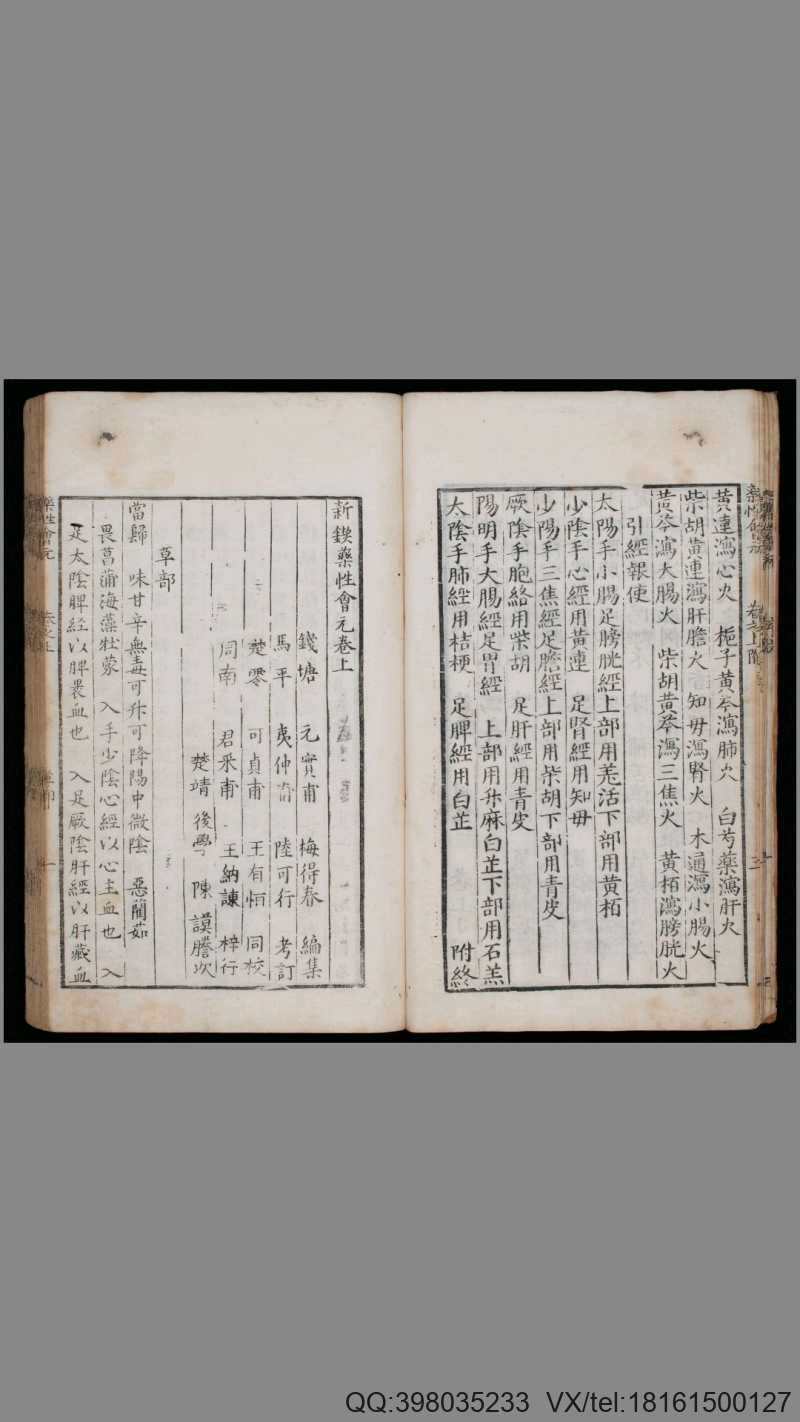 黄連瀉心火　梔子黄芩瀉肺火　白芍藥瀉肝火
柴胡黄連瀉肝膽火　知母瀉腎火　木通瀉小腸火
黄芩瀉大腸火　柴胡黄芩瀉三焦火　黄栢瀉膀胱火
引經報使
太陽手小腸足膀胱經上部用羗活下部用黄栢
少陰手心經用黄連　足腎經用知母
少陽手三焦經足膽經上部用柴胡下部用青皮
厥陰手胞絡用柴胡　足肝經用青皮
陽明手大腸經足胃經　上部用升麻白芷下部用石羔
太陰手肺經用桔梗　足脾經用白芷　附終
新鍥藥性會元卷上
錢塘　元實甫　梅得春　編集
馬平　夷仲甫　陸可行　考訂
楚零　可貞甫　王有恒　同校
周南　君采甫　王納諫　梓行
楚靖　後學　陳謨謄次
草部
當歸　味甘辛無毒可升可降陽中微陰　惡藺茹
畏菖蒲海藻牡蒙　入手少陰心經以心主血也　入
足太陰脾經以脾裹血也　入足厥陰肝經以肝藏血
藥性會元
QQ:398035233 VX/tel:18161500127